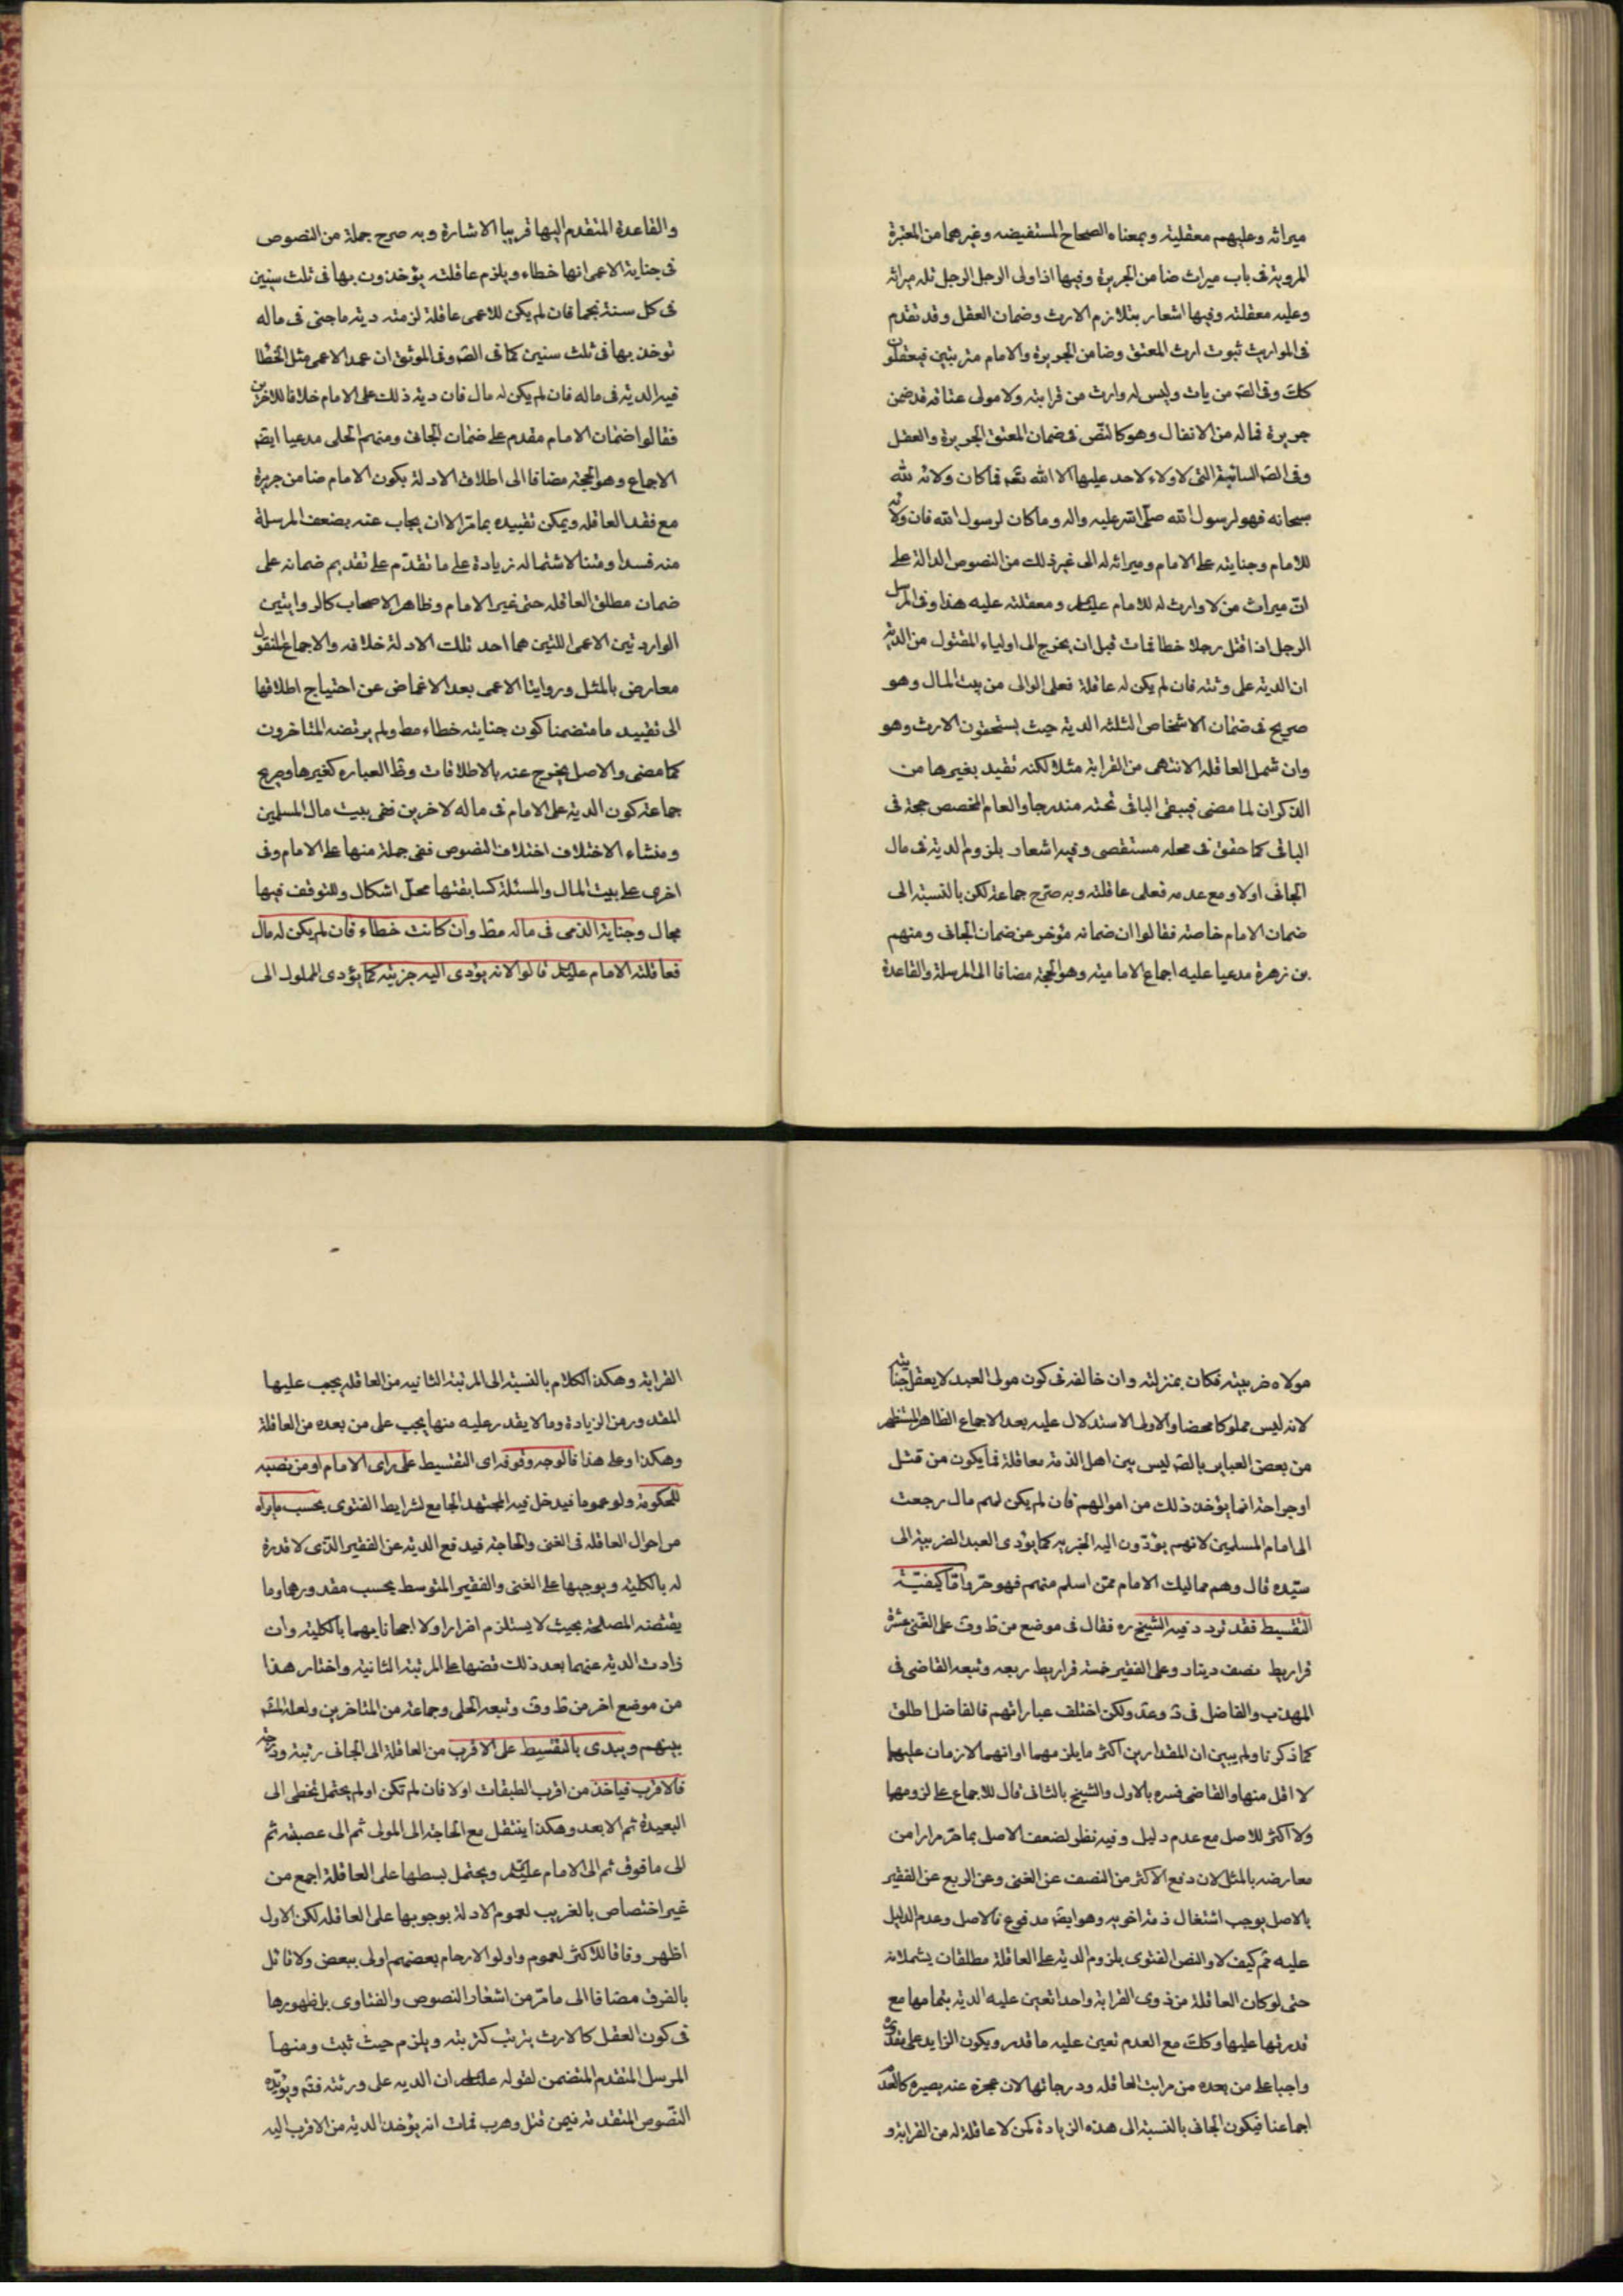 ميراثه وعليهم معقلته وبمعناه الصحاح المستفيضه وغيرهما من المعتبرة
المروية فى باب ميراث ضامن الجريرة وفيها اذا ولى الرجل الرجل فله ميراثه
وعليه معقلته وفيها اشعار بتلازم الارث وضمان العقل وقد تقدم
فى المواريث ثبوت ارث المعتق وضامن الجريرة والامام مترتبين فيعقلون
كلك وفى الصـ من مات وليس له وارث من قرابته ولا مولى عتاقه قد ضمن
جريرة فماله من الانفال وهو كالنص فى ضمان المعتق الجريرة والعقل
وفى الصـ السائبة التى لا ولاء لاحد عليها الا الله تعـ فما كان ولائه لله
سبحانه فهو لرسول الله صلى الله عليه واله وما كان لرسول الله فان ولائه
للامام وجنايته على الامام وميراثه له الى غير ذلك من النصوص الدالة على
ان ميراث من لا وارث له للامام عليه السلم ومعقلته عليه هذا وفى المرسل
الرجل اذا قتل رجلا خطا فمات قبل ان يخرج الى اولياء المقتول من الدية
ان الدية على ورثته فان لم يكن له عاقلة فعلى الوالى من بيت المال وهو
صريح فى ضمان الاشخاص الثلثه الدية حيث يستحقون الارث وهو
وان شمل العاقله الانثى من القرابة مثلا لكنه تقيد بغيرها من
الذكران لما مضى فيبقى الباقى تحته مندرجا والعام المخصص حجة فى
الباقى كما حقق فى محله مستقصى وفيه اشعار بلزوم الدية فى مال
الجانى اولا ومع عدمه فعلى عاقلته وبه صرح جماعة لكن بالنسبة الى
ضمان الامام خاصة فقالوا ان ضمانه مؤخر عن ضمان الجانى ومنهم
بن زهرة مدعيا عليه اجماع الاماميه وهو الحجة مضافا الى المرسلة والقاعدة
والقاعدة المتقدم اليها قريبا الاشارة وبه صرح جملة من النصوص
فى جناية الاعمى انها خطاء ويلزم عاقلته يؤخذون بها فى ثلث سنين
فى كل سنة نجما فان لم يكن للاعمى عاقلة لزمته دية ما جنى فى ماله
توخذ بها فى ثلث سنين كما فى الصـ وفى الموثق ان عمد الاعمى مثل الخطا
فيه الدية فى ماله فان لم يكن له مال فان دية ذلك على الامام خلافا للاخرين
فقالوا ضمان الامام مقدم على ضمان الجانى ومنهم الحلى مدعيا ايضـ
الاجماع وهو الحجة مضافا الى اطلاق الادلة بكون الامام ضامن جريرة
مع فقد العاقله ويمكن تقييده بما مر الا ان يجاب عنه بضعف المرسلة
منه سندا ومتنا لاشتماله زيادة على ما تقدم على تقديم ضمانه على
ضمان مطلق العاقله حتى غير الامام وظاهر الاصحاب كالروايتين
الواردتين الاعمى اللتين هما احد تلك الادلة خلافه والاجماع المنقول
معارض بالمثل وروايتا الاعمى بعد الاغماض عن احتياج اطلاقها
الى تقييد ما متضمنا كون جنايته خطاء مط ولم يرتضه المتاخرون
كما مضى والاصل يخرج عنه بالاطلاقات وظا العباره كغيرها وصريح
جماعة كون الدية على الامام فى ماله لاخرين ففى بيت مال المسلمين
ومنشاء الاختلاف اختلاف النصوص ففى جملة منها على الامام وفى
اخرى على بيت المال والمسئلة كسابقتها محل اشكال وللتوقف فيها
مجال وجناية الذمى فى ماله مط وان كانت خطاء فان لم يكن له مال
فعاقلته الامام عليه السلم قالوا لانه يؤدى اليه جزيته كما يؤدى المملوك الى
مولاه ضريبته فكان بمنزلته وان خالفه فى كون مولى العبد لا يعقل جنايته
لانه ليس مملوكا محضا والاولى الاستدلال عليه بعد الاجماع الظاهر المستظهر
من بعض العباير بالصـ ليس بين اهل الذمة معاقلة فما يكون من قتل
او جراحة انما يؤخذ ذلك من اموالهم فان لم يكن لهم مال رجعت
الى امام المسلمين لانهم يؤدون اليه الجزيه كما يؤدى العبد الضريبة الى
سيده قال وهم مماليك الامام ممن اسلم منهم فهو حر واما كيفية
التقسيط فقد تردد فيه الشيخ ره فقال فى موضع من ط وف على الغنى عشرة
قراريط نصف دينار وعلى الفقير خمسة قراريط ربعه وتبعه القاضى فى
المهذب والفاضل فى د وعد ولكن اختلف عباراتهم فالفاضل اطلق
كما ذكرنا ولم يبين ان المقدارين اكثر ما يلزمهما او انهما لازمان عليهما
لا اقل منها والقاضى فسره بالاول والشيخ بالثانى قال للاجماع على لزومهما
ولا اكثر للاصل مع عدم دليل وفيه نظر لضعف الاصل بما مر مرارا من
معارضه بالمثل لان دفع الاكثر من النصف عن الغنى وعن الربع عن الفقير
بالاصل يوجب اشتغال ذمة اخويه وهو ايضـ مدفوع فالاصل وعدم الدليل
عليه ثم كيف لا والنص الفتوى بلزوم الدية على العاقلة مطلقات يشملانه
حتى لو كان العاقلة من ذوى القرابة واحدا تعين عليه الدية بتمامها مع
قدرتها عليها وكلك مع العدم تعين عليه ما قدر ويكون الزايد على مقدرى
واجبا على من بعده من مراتب العاقله ودرجاتها لان عجزه عنه يصيره كالعدم
اجماعنا فيكون الجانى بالنسبة الى هذه الزيادة كمن لا عاقلة له من القرابة و
القرابة وهكذا الكلام بالنسبة الى المرتبة الثانيه من العاقله يجب عليها
المقدور من الزيادة وما لا يقدر عليه منها يجب على من بعده من العاقلة
وهكذا وعلى هذا فالوجه وقوفه اى التقسيط على راى الامام او من نصبه
للحكومة ولو عموما فيدخل فيه المجتهد الجامع لشرايط الفتوى بحسب ما يراه
من احوال العاقله فى الغنى والحاجة فيدفع الدية عن الفقير الذى لا قدرة
له بالكلية ويوجبها على الغنى والفقير المتوسط بحسب مقدورهما وما
يقتضه المصلحة بحيث لا يستلزم اضرارا ولا اجحافا بهما بالكلية وان
زادت الدية عنهما بعد ذلك فضها على المرتبة الثانية واختار هذا
من موضع اخر من ط وف وتبعه الحلى وجماعة من المتاخرين ولعله المشـ
بينهم ويبدى بالتقسيط على الاقرب من العاقلة الى الجانى رتبة ودرجة
فالاقرب فياخذ من اقرب الطبقات اولا فان لم تكن او لم يحتمل تخطى الى
البعيدة ثم الابعد وهكذا ينتقل مع الحاجة الى المولى ثم الى عصبته ثم
الى ما فوق ثم الى الامام عليه السلم ويحتمل بسطها على العاقلة اجمع من
غير اختصاص بالغريب لعموم الادلة بوجوبها على العاقله لكن الاول
اظهر وفاقا للاكثر لعموم واولوا الارحام بعضهم اولى ببعض ولا قائل
بالفرق مضافا الى ما مر من اشعار النصوص والفتاوى بل ظهورها
فى كون العقل كالارث يترتب كترتبه ويلزم حيث ثبت ومنها
المرسل المتقدم المتضمن لقوله عليه السلم ان الديه على ورثته فثم ويؤيده
النصوص المتقدمة فيمن قتل وهرب فمات انه يؤخذ الدية من الاقرب اليه